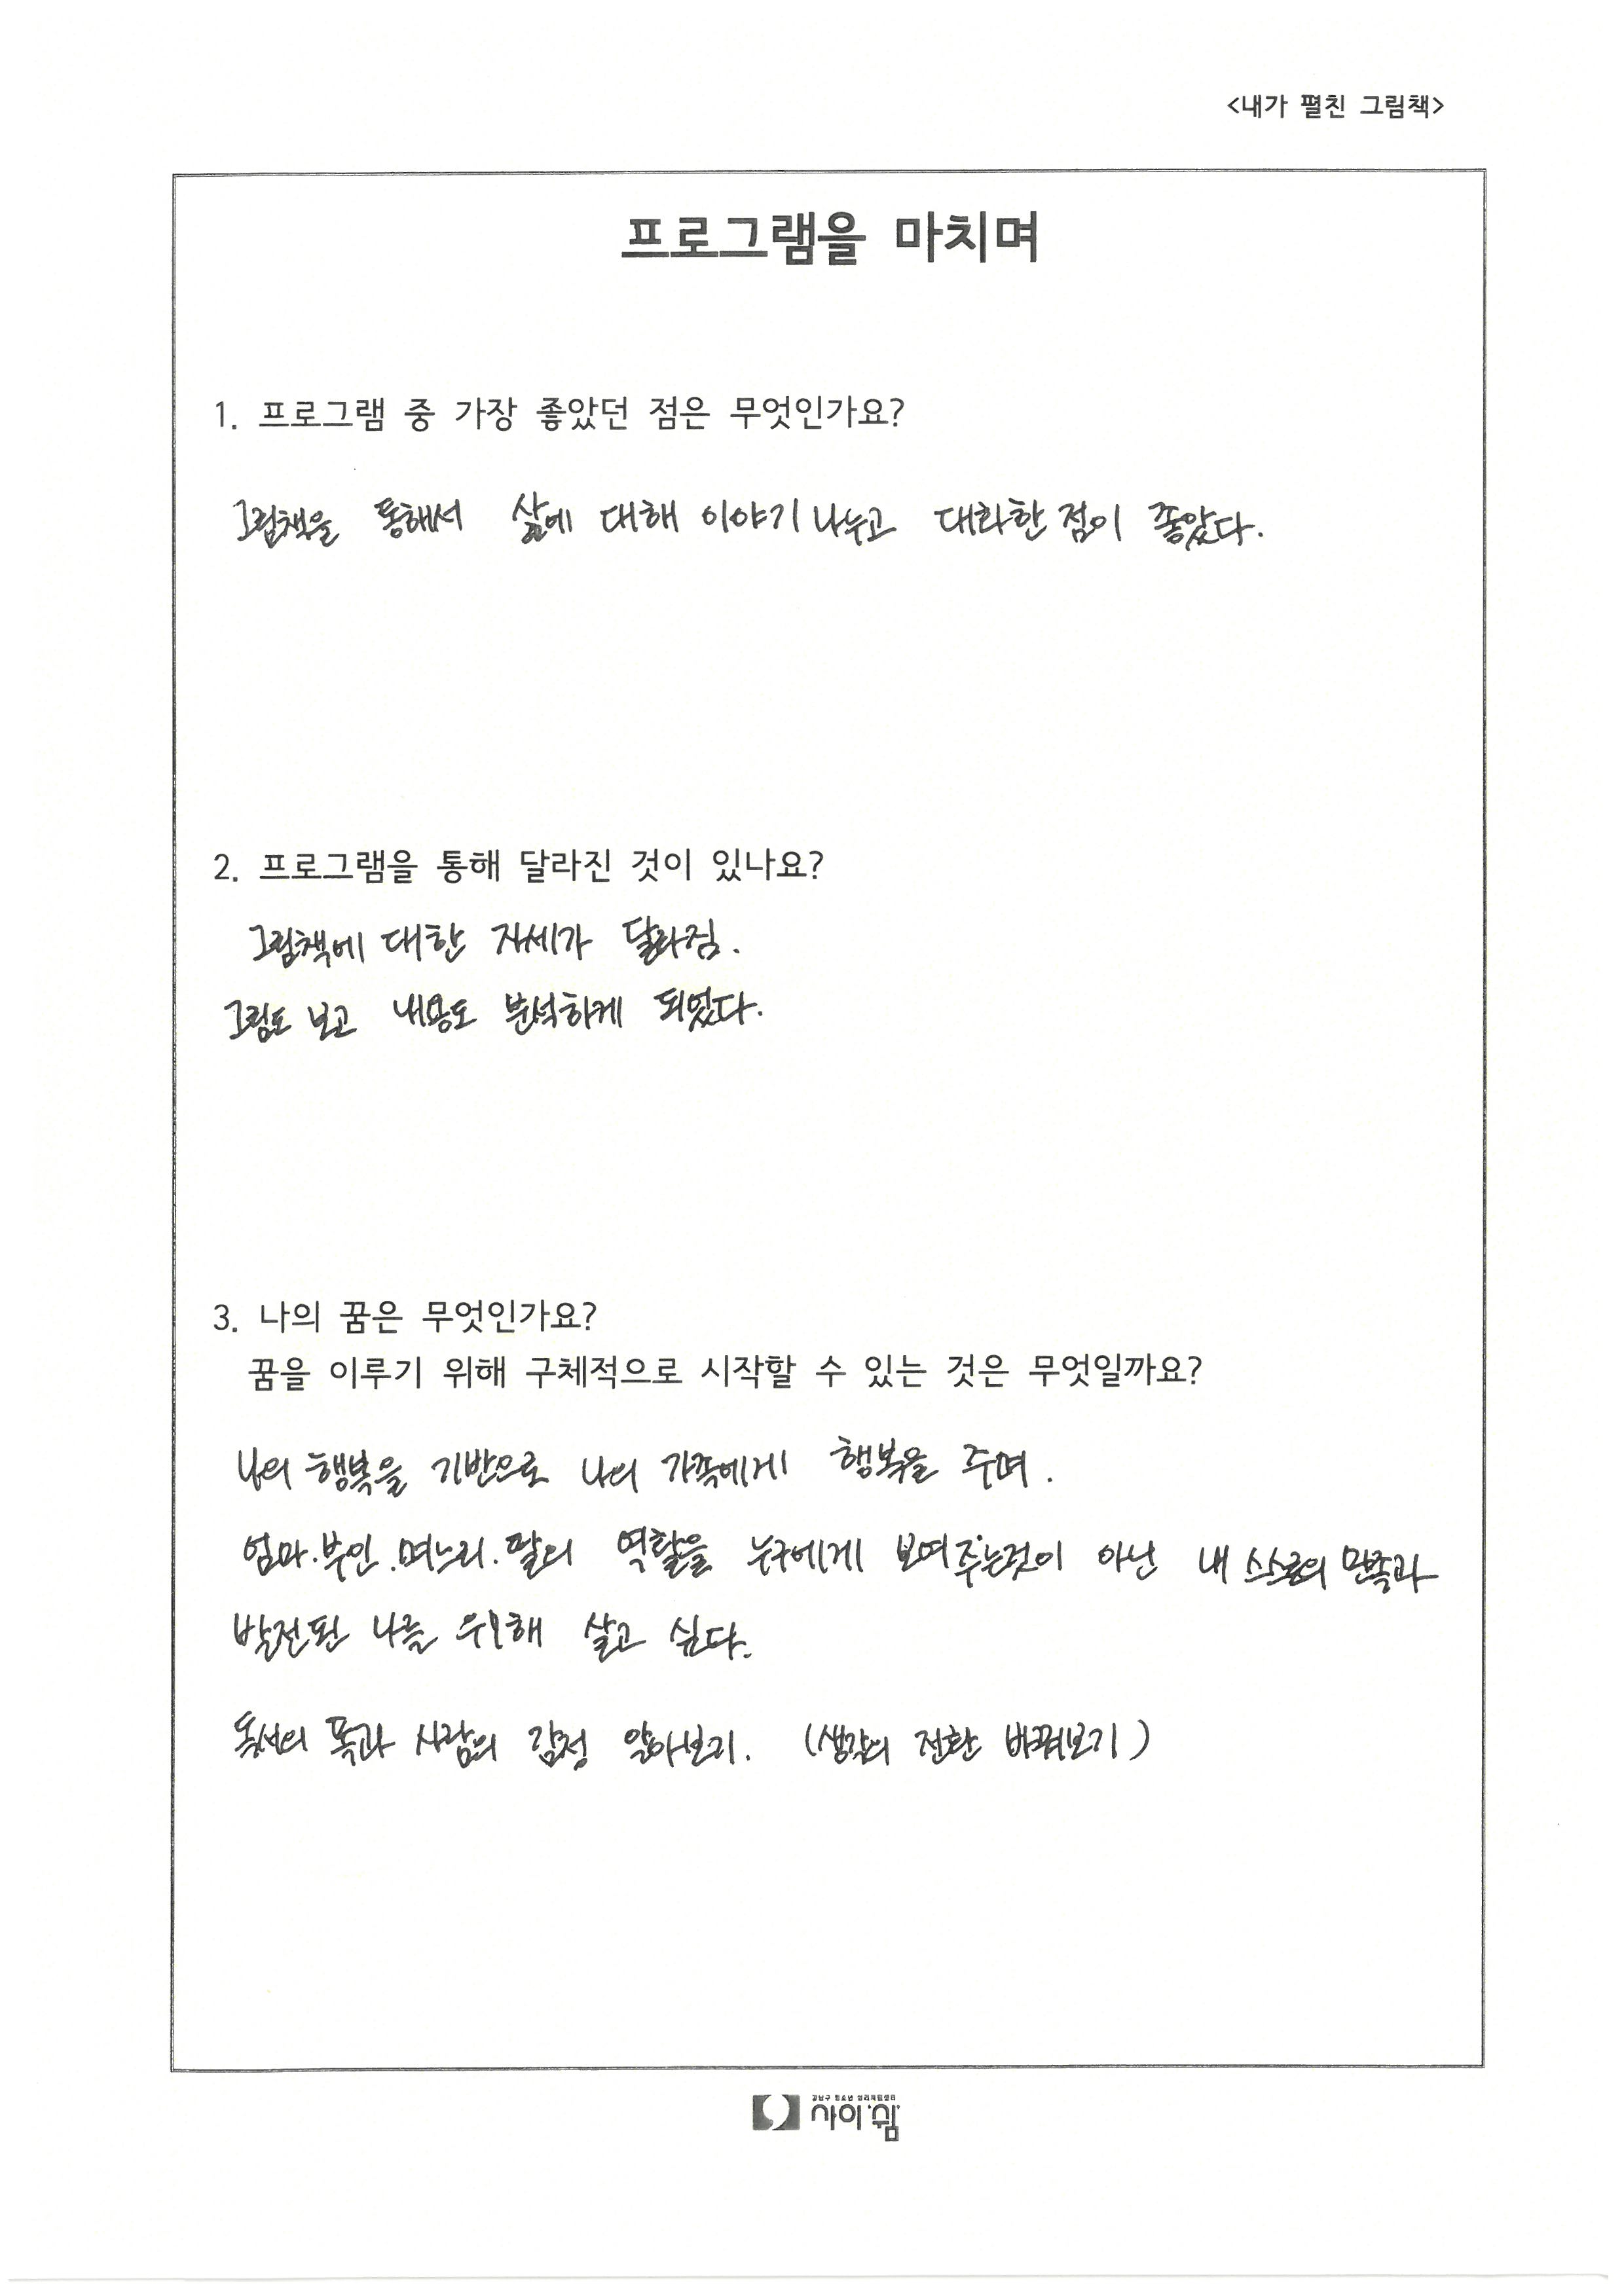 <내가 펼친 그림책>
프로그램을 마치며
1. 프로그램 중 가장 좋았던 점은 무엇인가요?
그림책을 통해서 삶에 대해 이야기 나누고 대화한 점이 좋았다.
2. 프로그램을 통해 달라진 것이 있나요?
그림책에 대한 자세가 달라짐.
그림도 보고 내용도 분석하게 되었다.
3. 나의 꿈은 무엇인가요?
꿈을 이루기 위해 구체적으로 시작할 수 있는 것은 무엇일까요?
나의 행복을 기반으로 나의 가족에게 행복을 주며.
엄마.부인.며느리.딸의 역할을 누구에게 보여주는것이 아닌 내 스스로의 만족과
발전된 나를 위해 살고 싶다.
독서의 폭과 사람의 감정 알아보기. (생각의 전환 바꿔보기)
강남구 청소년 심리지원센터
사이쉼